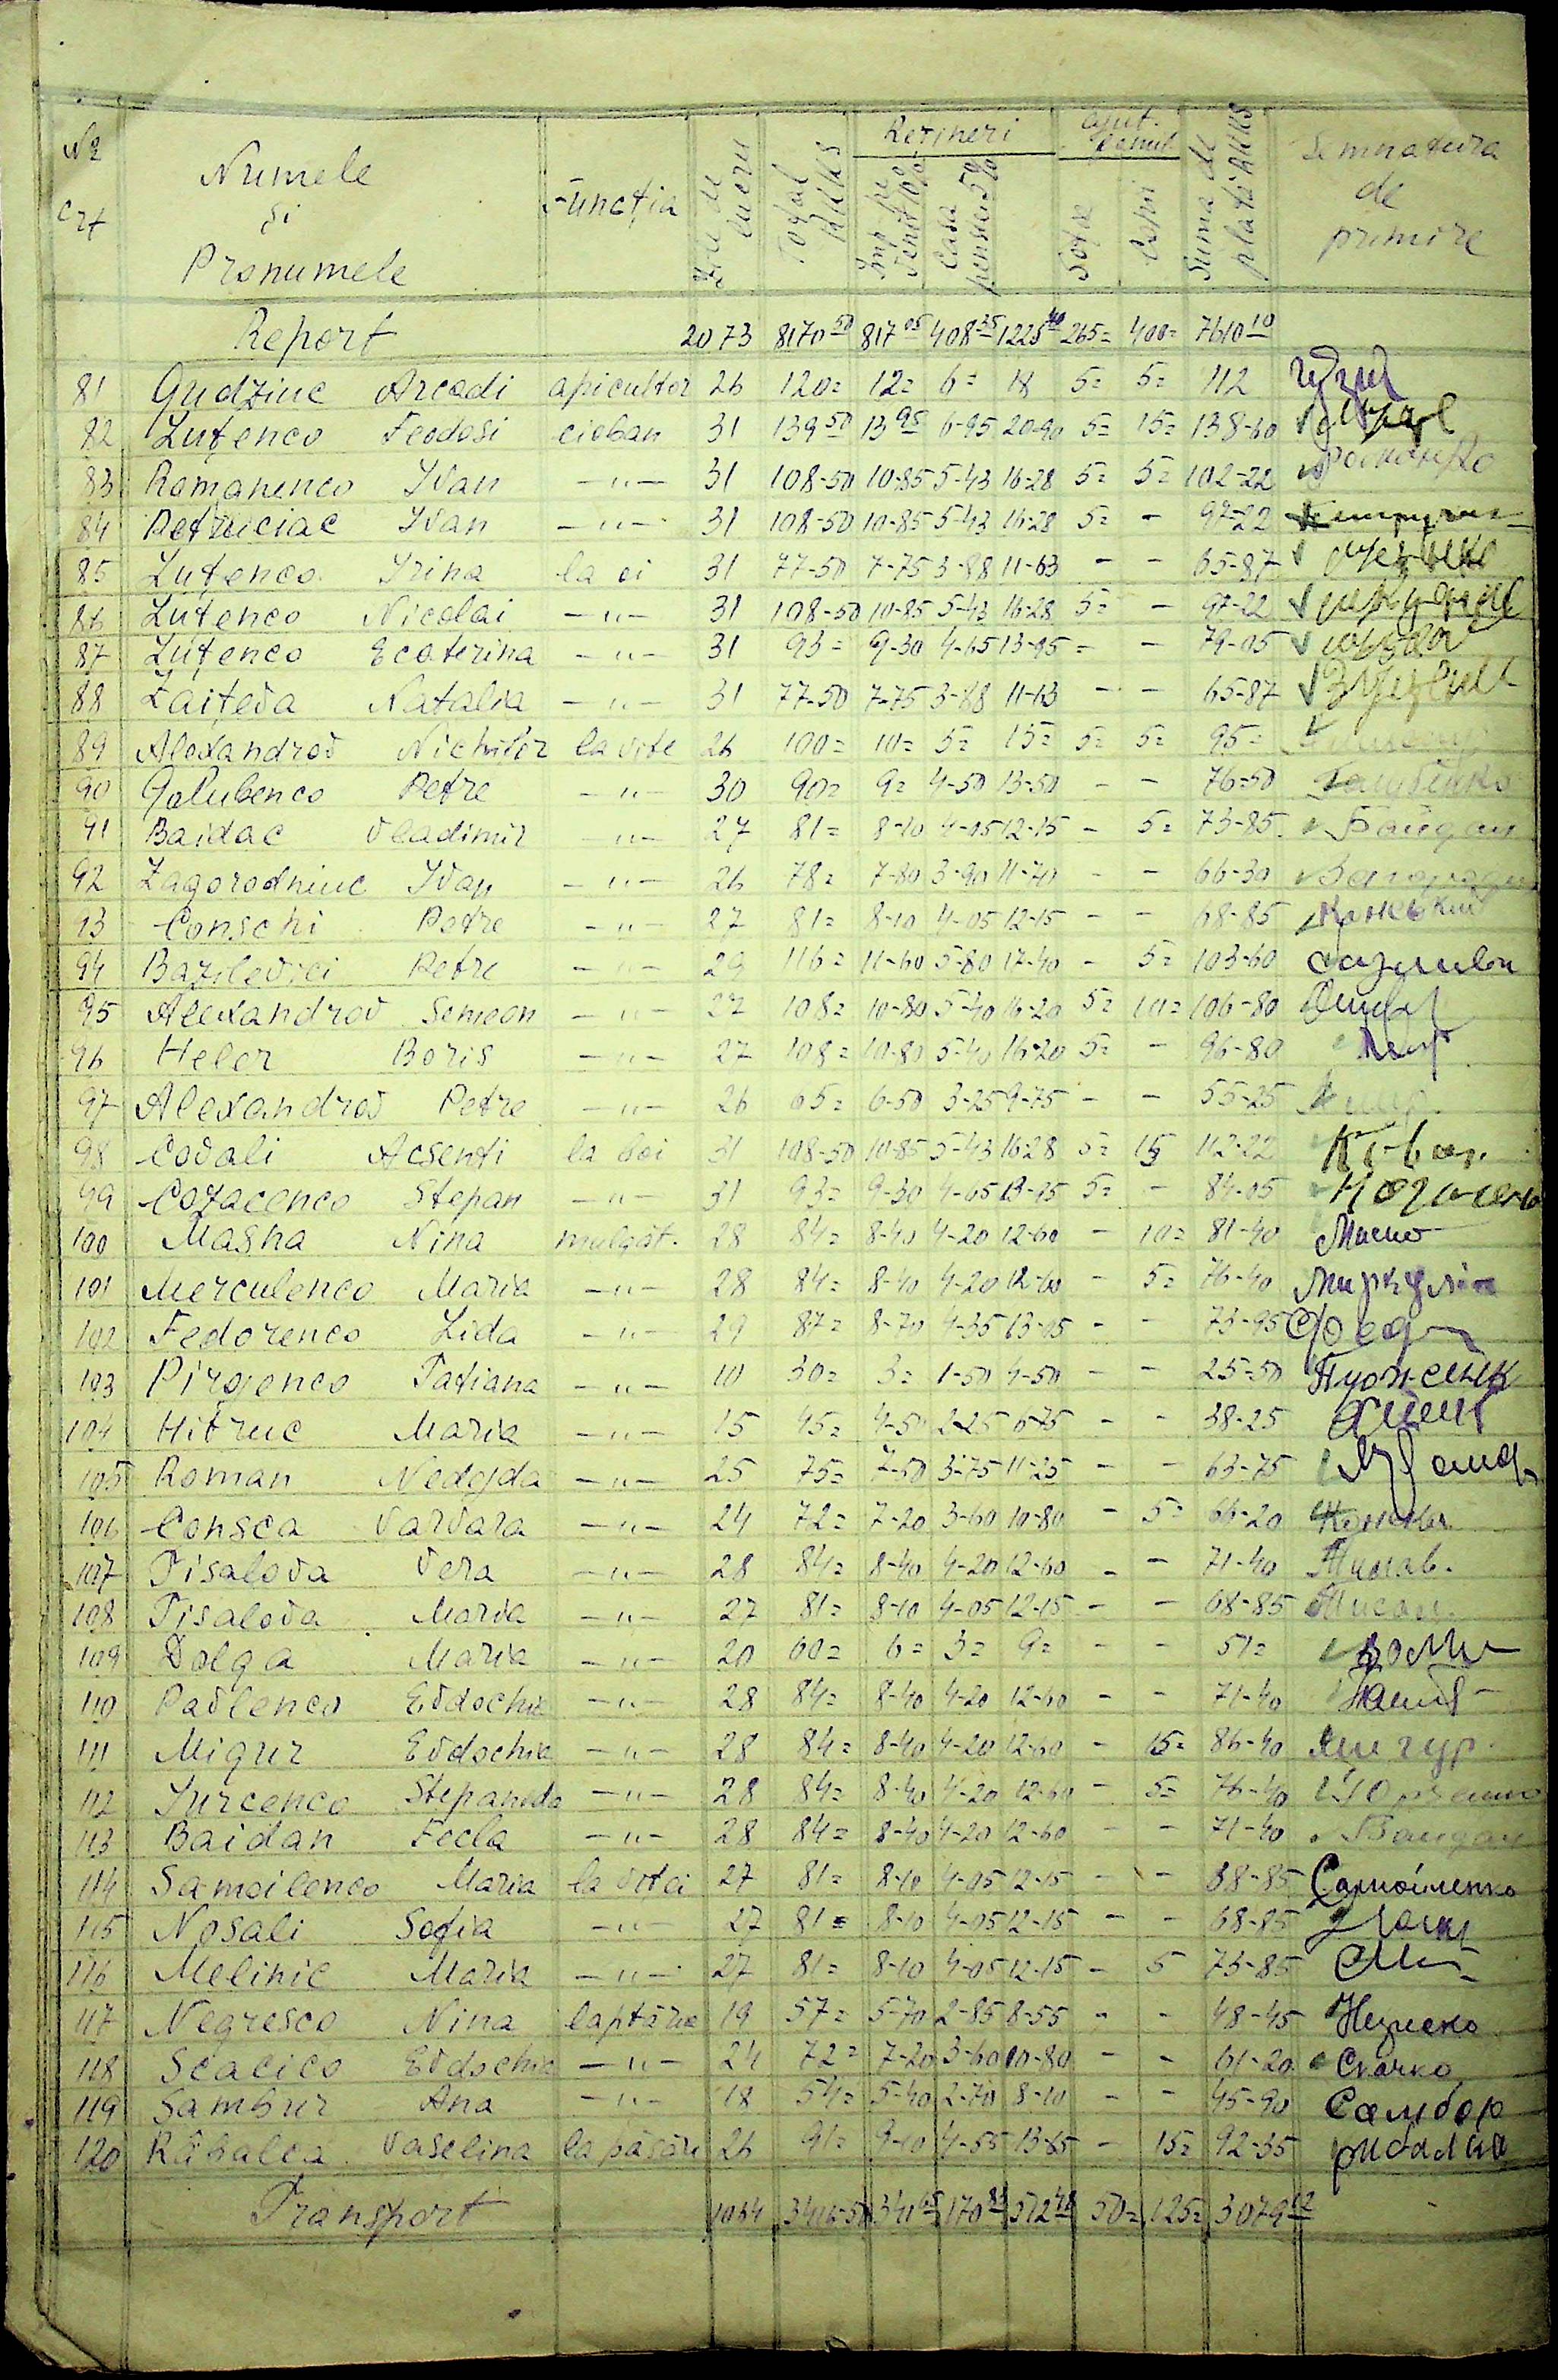 Nr crt Numele și Pronumele Funcția Zile de lucru Total RKKS Rețineri Imp. pe venit 10% Casa pensiei 5% Ajut. famil. Soție Copii Suma de plată RKKS Semnatura de primire
Report 2073 8170 50 817 05 408 35 1225 40 265= 400= 7610 10
81 Gudziuc Arcadi apicultor 26 120= 12= 6= 18 5= 5= 112
82 Luțenco Feodosi cioban 31 139 50 13 95 6-95 20-90 5= 15= 138-60
83 Romanenco Ivan —"— 31 108-50 10-85 5-43 16-28 5= 5= 102-22
84 Petruciac Ivan —"— 31 108-50 10-85 5-43 16-28 5= - 97-22
85 Luțenco Irina la oi 31 77-50 7-75 3-88 11-63 - - 65-87
86 Luțenco Nicolai —"— 31 108-50 10-85 5-43 16-28 5= - 97-22
87 Luțenco Ecaterina —"— 31 93= 9-30 4-65 13-95 - - 79-05
88 Zaițeva Natalia —"— 31 77-50 7-75 3-88 11-13 - - 65-87
89 Alexandrov Nichifor la vite 26 100= 10= 5= 15= 5= 5= 95=
90 Golubenco Petre —"— 30 90= 9= 4-50 13-50 - - 76-50
91 Baidac Vladimir —"— 27 81= 8-10 4-05 12-15 - 5= 73-85
92 Zagorodniuc Ivan —"— 26 78= 7-80 3-90 11-70 - - 66-30
93 Conschi Petre —"— 27 81= 8-10 4-05 12-15 - - 68-85
94 Bazilevici Petre —"— 29 116= 11-60 5-80 17-40 - 5= 103-60
95 Alexandrov Semeon —"— 27 108= 10-80 5-40 16-20 5= 10= 106-80
96 Heler Boris —"— 27 108= 10-80 5-40 16-20 5= - 96-80
97 Alexandrov Petre —"— 26 65= 6-50 3-25 9-75 - - 55-25
98 Covali Acsenti la boi 31 108-50 10-85 5-43 16-28 5= 15 112-22
99 Cozacenco Stepan —"— 31 93= 9-30 4-65 13-95 5= - 84-05
100 Masna Nina mulgăt. 28 84= 8-40 4-20 12-60 - 10= 81-40
101 Merculenco Maria —"— 28 84= 8-40 4-20 12-60 - 5= 76-40
102 Fedorenco Lida —"— 29 87= 8-70 4-35 13-05 - - 73-95
103 Pirojenco Tatiana —"— 10 30= 3= 1-50 4-50 - - 25-50
104 Hitruc Maria —"— 15 45= 4-50 2-25 6-75 - - 38-25
105 Roman Nedejda —"— 25 75= 7-50 3-75 11-25 - - 63-75
106 Consca Varvara —"— 24 72= 7-20 3-60 10-80 - 5= 66-20
107 Tisalova Vera —"— 28 84= 8-40 4-20 12-60 - - 71-40
108 Tisalova Maria —"— 27 81= 8-10 4-05 12-15 - - 68-85
109 Dolga Maria —"— 20 60= 6= 3= 9= - - 51=
110 Pavlenco Evdochia —"— 28 84= 8-40 4-20 12-60 - - 71-40
111 Migur Evdochia —"— 28 84= 8-40 4-20 12-60 - 15= 86-40 Мигур.
112 Iurcenco Stepanida —"— 28 84= 8-40 4-20 12-60 - 5= 76-40
113 Baidan Fecla —"— 28 84= 8-40 4-20 12-60 - - 71-40 Байдан
114 Samoilenco Maria la viței 27 81= 8-10 4-05 12-15 - - 68-85 Самойленко
115 Nosali Sofia —"— 27 81= 8-10 4-05 12-15 - - 68-85
116 Melinic Maria —"— 27 81= 8-10 4-05 12-15 - 5 73-85
117 Negresco Nina laptărie 19 57= 5-70 2-85 8-55 - - 48-45
118 Scacico Evdochia —"— 24 72= 7-20 3-60 10-80 - - 61-20 Скачко
119 Sambur Ana —"— 18 54= 5-40 2-70 8-10 - - 45-90 Самбор
120 Râbalca Vaselina la păsări 26 91= 9-10 4-55 13-65 - 15= 92-35
Transport 1064 3416-50 341 65 170 83 512 48 50= 125= 3079 02